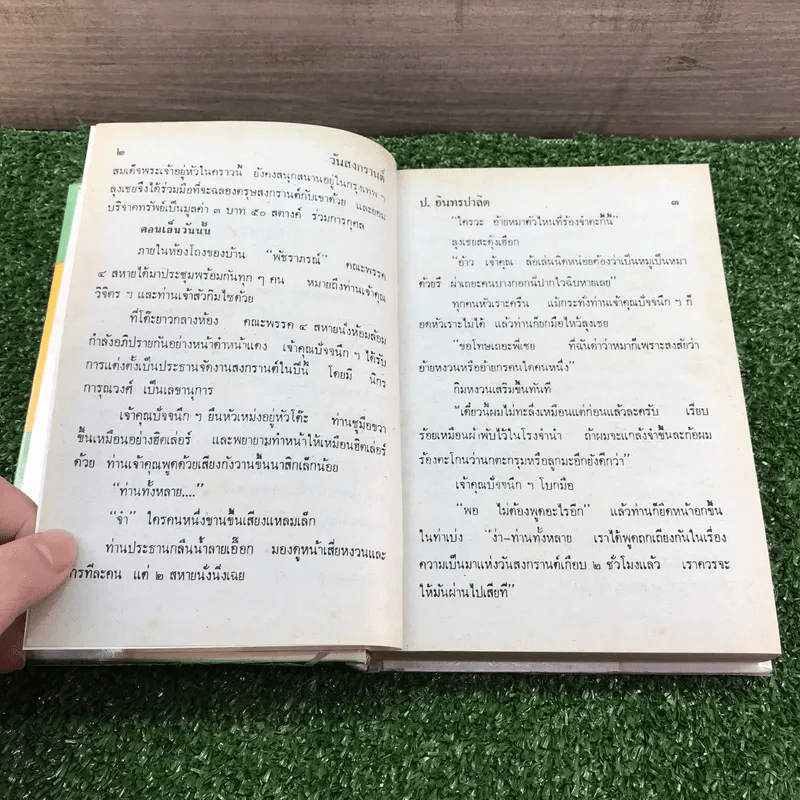 ๒
วันสงกรานต์
สมเด็จพระเจ้าอยู่หัวในคราวนี้ ยังคงสนุกสนานอยู่ในกรุงเทพ ฯ
ลุงเชยจึงได้ร่วมมือที่จะฉลองครุษสงกรานต์กับเขาด้วย และยอม
บริจาคทรัพย์เป็นมูลค่า ๓ บาท ๕๐ สตางค์ ร่วมการกุศล
ตอนเย็นวันนั้น
ภายในห้องโถงของบ้าน “พัชราภรณ์” คณะพรรค
๔ สหายได้มาประชุมพร้อมกันทุก ๆ คน หมายถึงท่านเจ้าคุณ
วิจิตร ฯ และท่านเจ้าสัวกิมไซด้วย
ที่โต๊ะยาวกลางห้อง คณะพรรค ๔ สหายนั่งห้อมล้อม
กำลังอภิปรายกันอย่างหน้าดำหน้าแดง เจ้าคุณปัจจนึก ฯ ได้รับ
การแต่งตั้งเป็นประธานจัดงานสงกรานต์ในปีนี้ โดยมี นิกร
การุณวงศ์ เป็นเลขานุการ
เจ้าคุณปัจจนึก ฯ ยืนหัวเหม่งอยู่หัวโต๊ะ ท่านชูมือขวา
ขึ้นเหมือนอย่างฮิตเล่อร์ และพยายามทำหน้าให้เหมือนฮิตเล่อร์
ด้วย ท่านเจ้าคุณพูดด้วยเสียงกังวานขึ้นนาสิกเล็กน้อย
“ท่านทั้งหลาย....”
“จ๋า” ใครคนหนึ่งขานขึ้นเสียงแหลมเล็ก
ท่านประธานกลืนน้ำลายเอื๊อก มองดูหน้าเสี่ยหงวนและ
กรทีละคน แต่ ๒ สหายนั่งนิ่งเฉย
ป. อินทรปาลิต
๓
“ใครวะ อ้ายหมาตัวไหนที่ร้องจ๋าตะกี้นี้”
ลุงเชยสะดุ้งเฮือก
“อ้าว เจ้าคุณ ล้อเล่นนิดหน่อยต้องว่าเป็นหมูเป็นหมา
ด้วยรึ ผ่าเถอะคนบางกอกนี่ปากไวฉิบหายเลย”
ทุกคนหัวเราะครืน แม้กระทั่งท่านเจ้าคุณปัจจนึก ฯ ก็
อดหัวเราะไม่ได้ แล้วท่านก็ยกมือไหว้ลุงเชย
“ขอโทษเถอะพี่เชย ที่ฉันด่าว่าหมาก็เพราะสงสัยว่า
อ้ายหงวนหรืออ้ายกรคนใดคนหนึ่ง”
กิมหงวนเสริมขึ้นทันที
“เดี๋ยวนี้ผมไม่ทะลึ่งเหมือนแต่ก่อนแล้วละครับ เรียบ
ร้อยเหมือนผ้าพับไว้ในโรงจำนำ ถ้าผมจะแกล้งจ๋าขึ้นละก้อผม
ร้องตะโกนว่านกตะกรุมหรือลูกมะอึกยังดีกว่า”
เจ้าคุณปัจจนึก ฯ โบกมือ
“พอ ไม่ต้องพูดอะไรอีก” แล้วท่านก็ยืดหน้าอกขึ้น
ในท่าเบ่ง “ง่า–ท่านทั้งหลาย เราได้พูดถกเถียงกันในเรื่อง
ความเป็นมาแห่งวันสงกรานต์เกือบ ๒ ชั่วโมงแล้ว เราควรจะ
ให้มันผ่านไปเสียที”